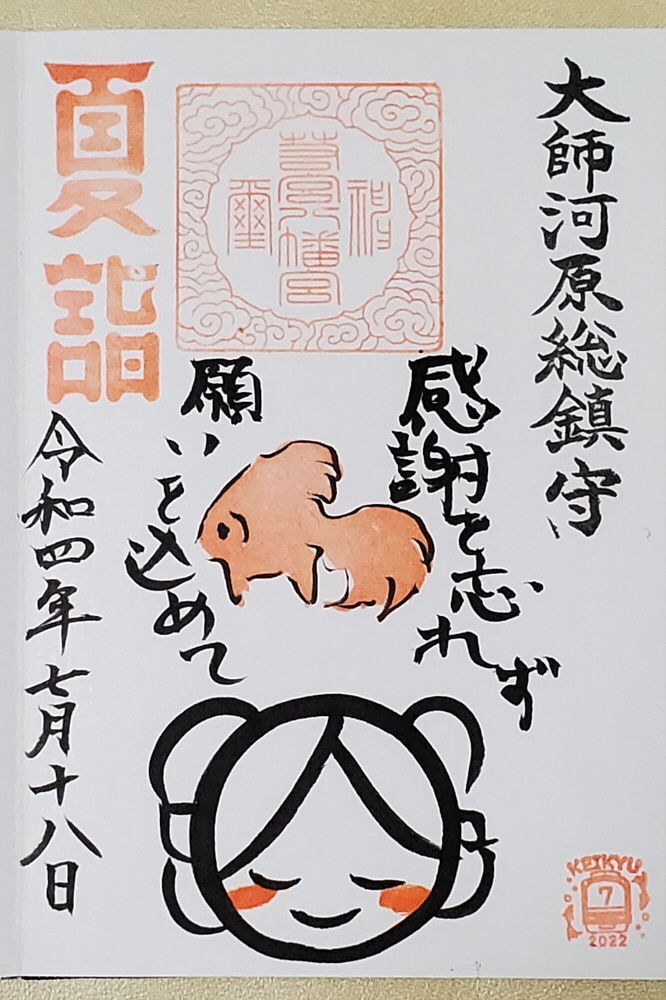 大師河原総鎮守
感謝を忘れず
願いを込めて
若宮八幡宮
夏詣
令和四年七月十八日
KEIKYU
7
2022